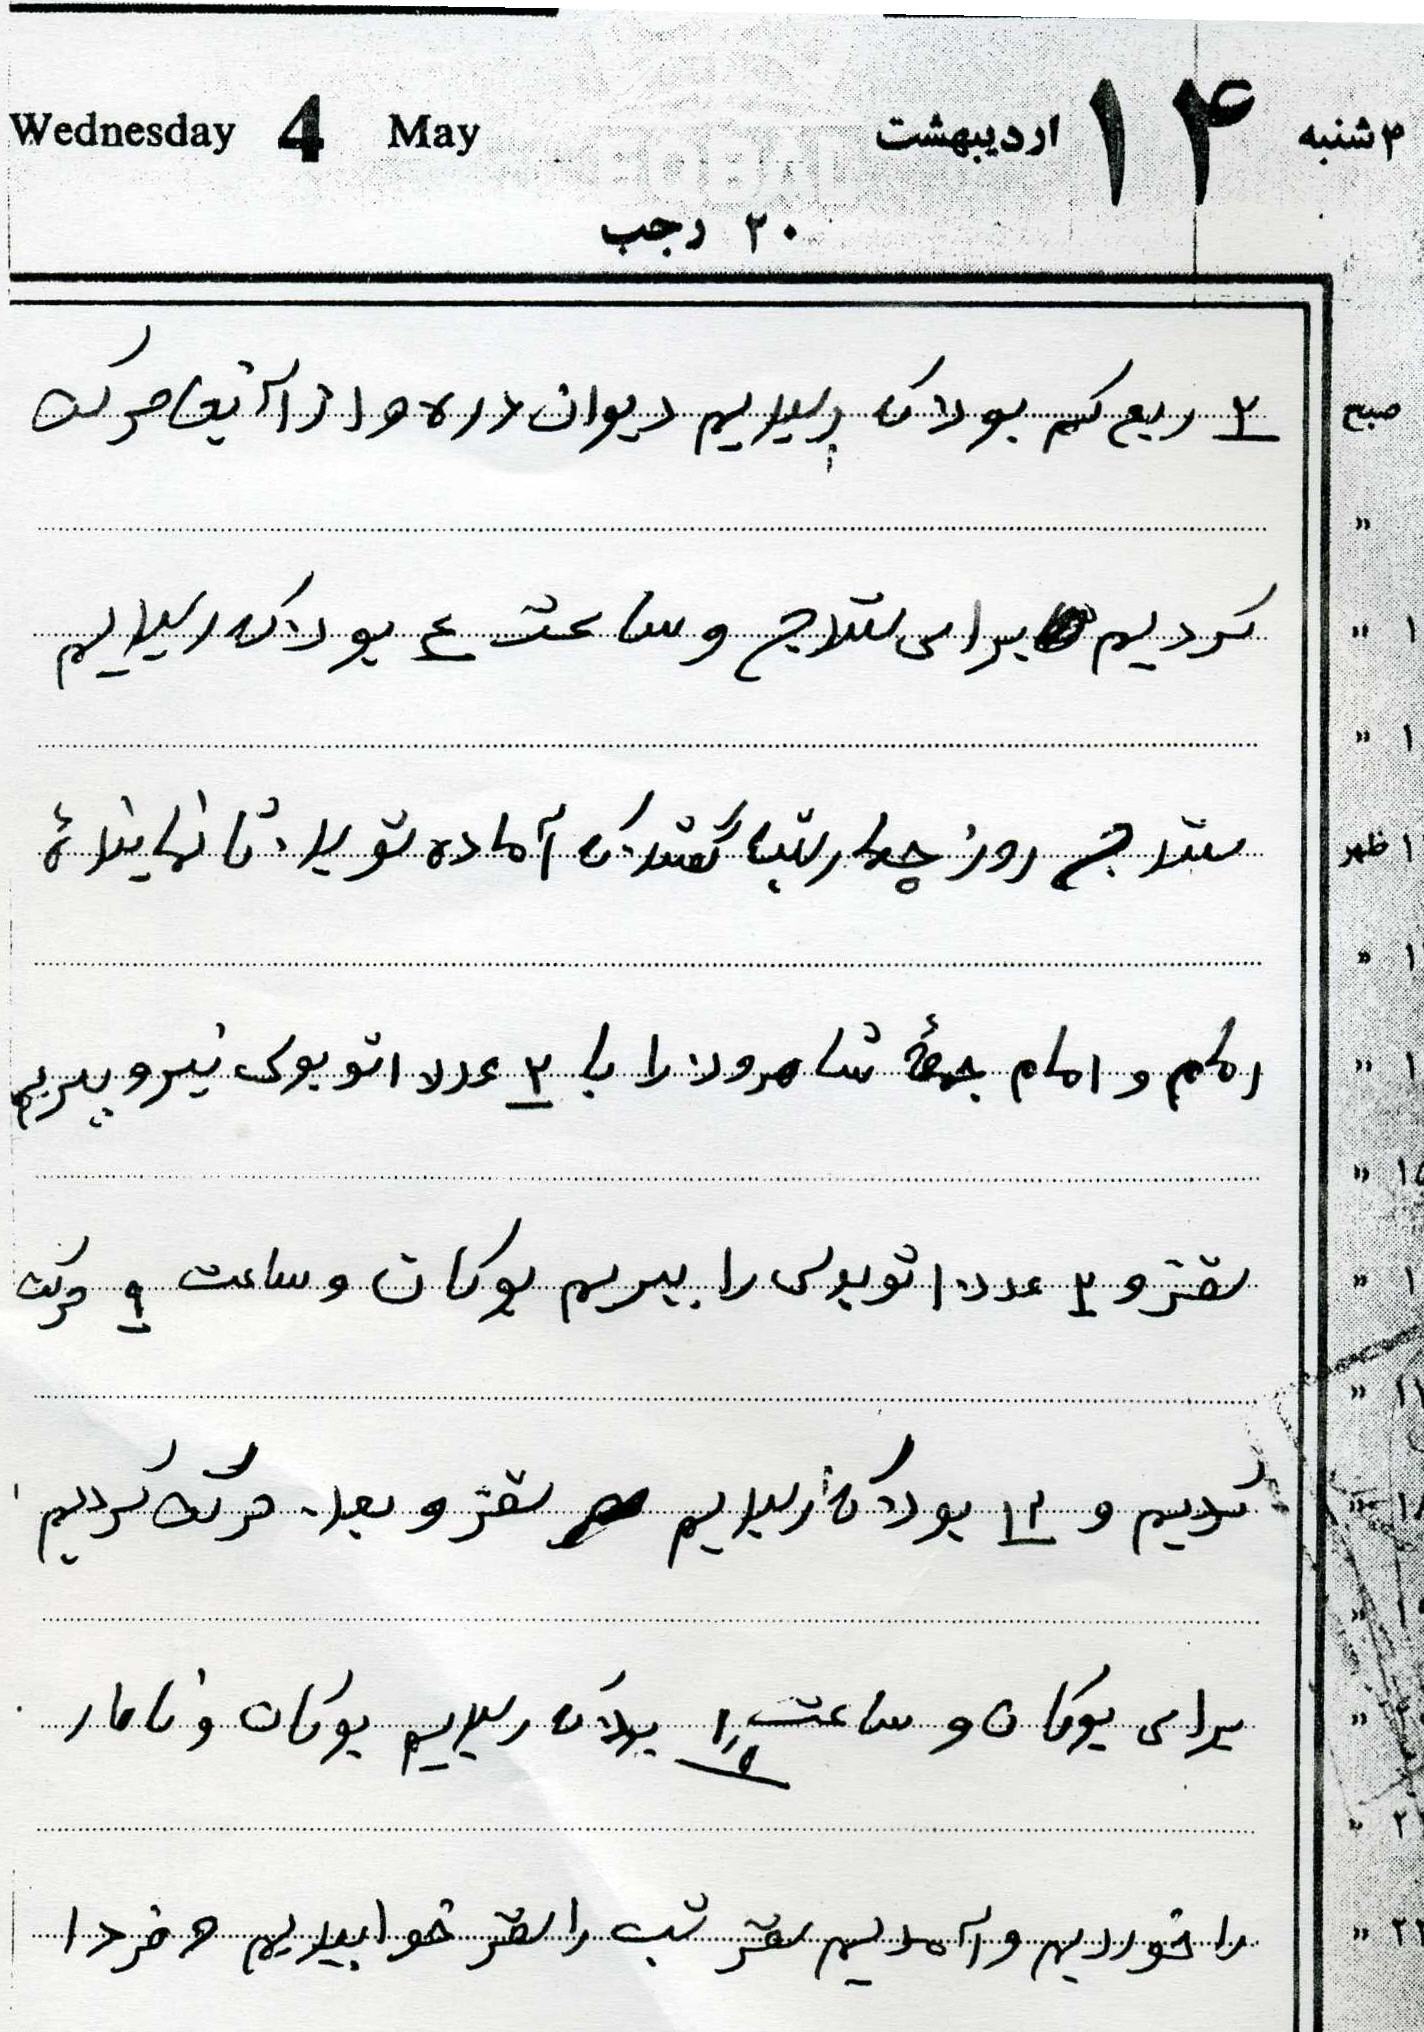 Wednesday 4 May ۱۴ اردیبهشت ۴شنبه
۲۰ رجب
صبح
۲ ربع کم بود که رسیدیم دیوان دره و از آنجا حرکت
کردیم برای سنندج و ساعت ۴ بود که رسیدیم
سنندج روز چهارشنبه گفتند که آماده شوید تا نمایندهٔ
ظهر
امام و امام جمعهٔ شاهرود را با ۲ عدد اتوبوس نیرو ببریم
سقز و ۲ عدد اتوبوس را ببریم بوکان و ساعت ۹ حرکت
کردیم و ۱۲ بود که رسیدیم سقز و بعد حرکت کردیم
برای بوکان و ساعت ۱،۵ بود که رسیدیم بوکان و ناهار
را خوردیم و آمدیم سقز شب را سقز خوابیدیم و فردا